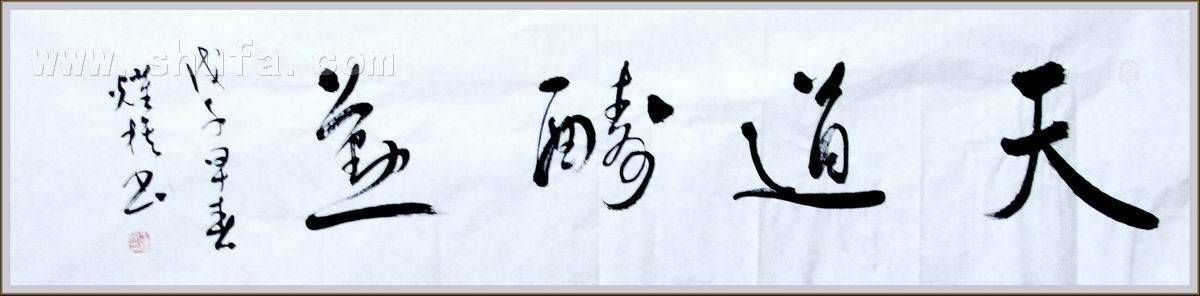 天道酬勤
戊子早春
书
www.shufa.com